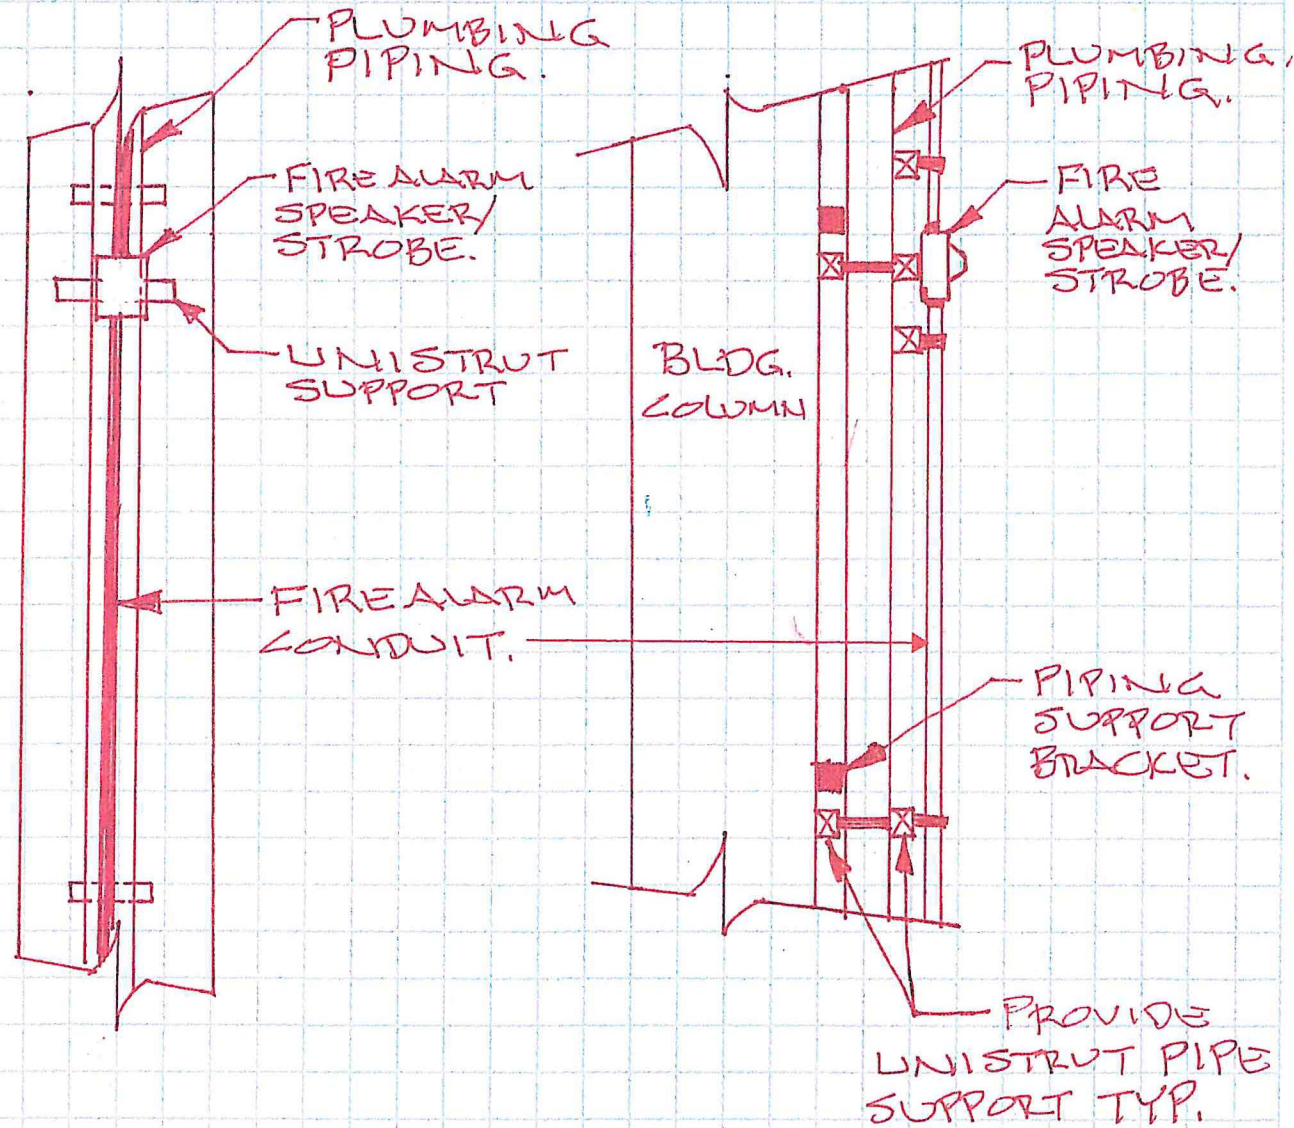 PLUMBING
PIPING.
FIRE ALARM
SPEAKER/
STROBE.
UNISTRUT
SUPPORT
FIRE ALARM
CONDUIT.
BLDG.
COLUMN
PLUMBING
PIPING.
FIRE
ALARM
SPEAKER/
STROBE.
PIPING
SUPPORT
BRACKET.
PROVIDE
UNISTRUT PIPE
SUPPORT TYP.